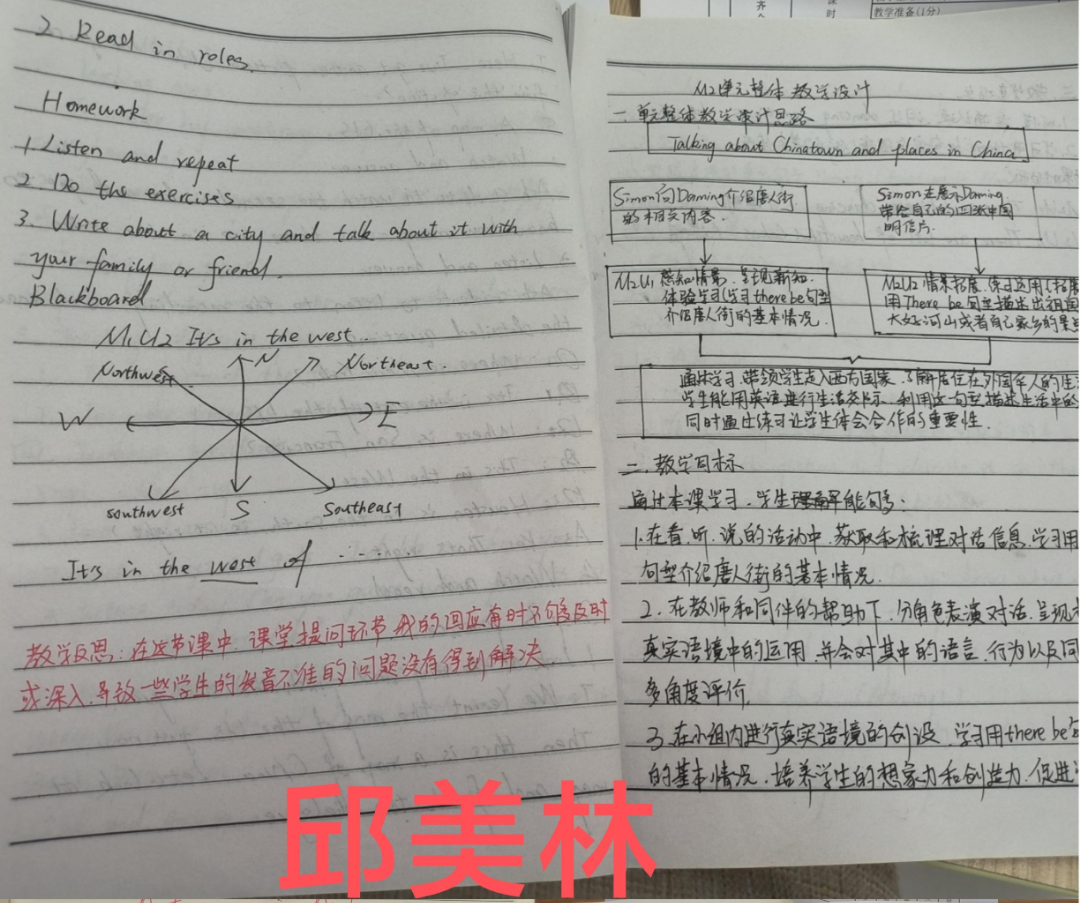 2. Read in roles.
Homework
1. Listen and repeat
2. Do the exercises
3. Write about a city and talk about it with
your family or friend.
Blackboard
M1U2 It's in the west.
N
Northwest
Northeast.
W
E
southwest
S
Southeast
It's in the west of ...
教学反思：在这节课中，课堂提问环节我的回应有时不够及时
或深入，导致一些学生的发音不准的问题没有得到解决
教学准备(1分)
M2单元整体教学设计
一、单元整体教学设计思路
Talking about Chinatown and places in China
Simon向Daming介绍唐人街
的相关内容.
Simon在展示Daming
带给自己的四张中国
明信片.
M2U1 感知情景，呈现新知.
体验学习(学习there be句型
介绍唐人街的基本情况.
M2U2 情景拓展，练习运用(拓展
用There be句型描述出祖国
大好河山或者自己家乡的景点
通过学习，带领学生走入西方国家，了解居住在外国华人的生活
学生能用英语进行生活交际，利用这一句型描述生活中的
同时通过练习让学生体会合作的重要性.
二、教学目标
通过本课学习，学生能够：
1. 在看、听、说的活动中，获取和梳理对话信息，学习用
句型介绍唐人街的基本情况.
2. 在教师和同伴的帮助下，分角色表演对话，呈现
真实语境中的运用，并会对其中的语言，行为以及同
多角度评价.
3. 在小组内进行真实语境的创设，学习用there be句
的基本情况，培养学生的想象力和创造力，促进
邱美林